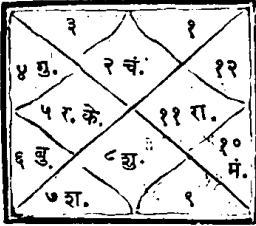 ३ १
४ गु. २ चं. १२
५ र. के. ११ रा.
६ बु. ८ शु. १० मं.
७ श. ९